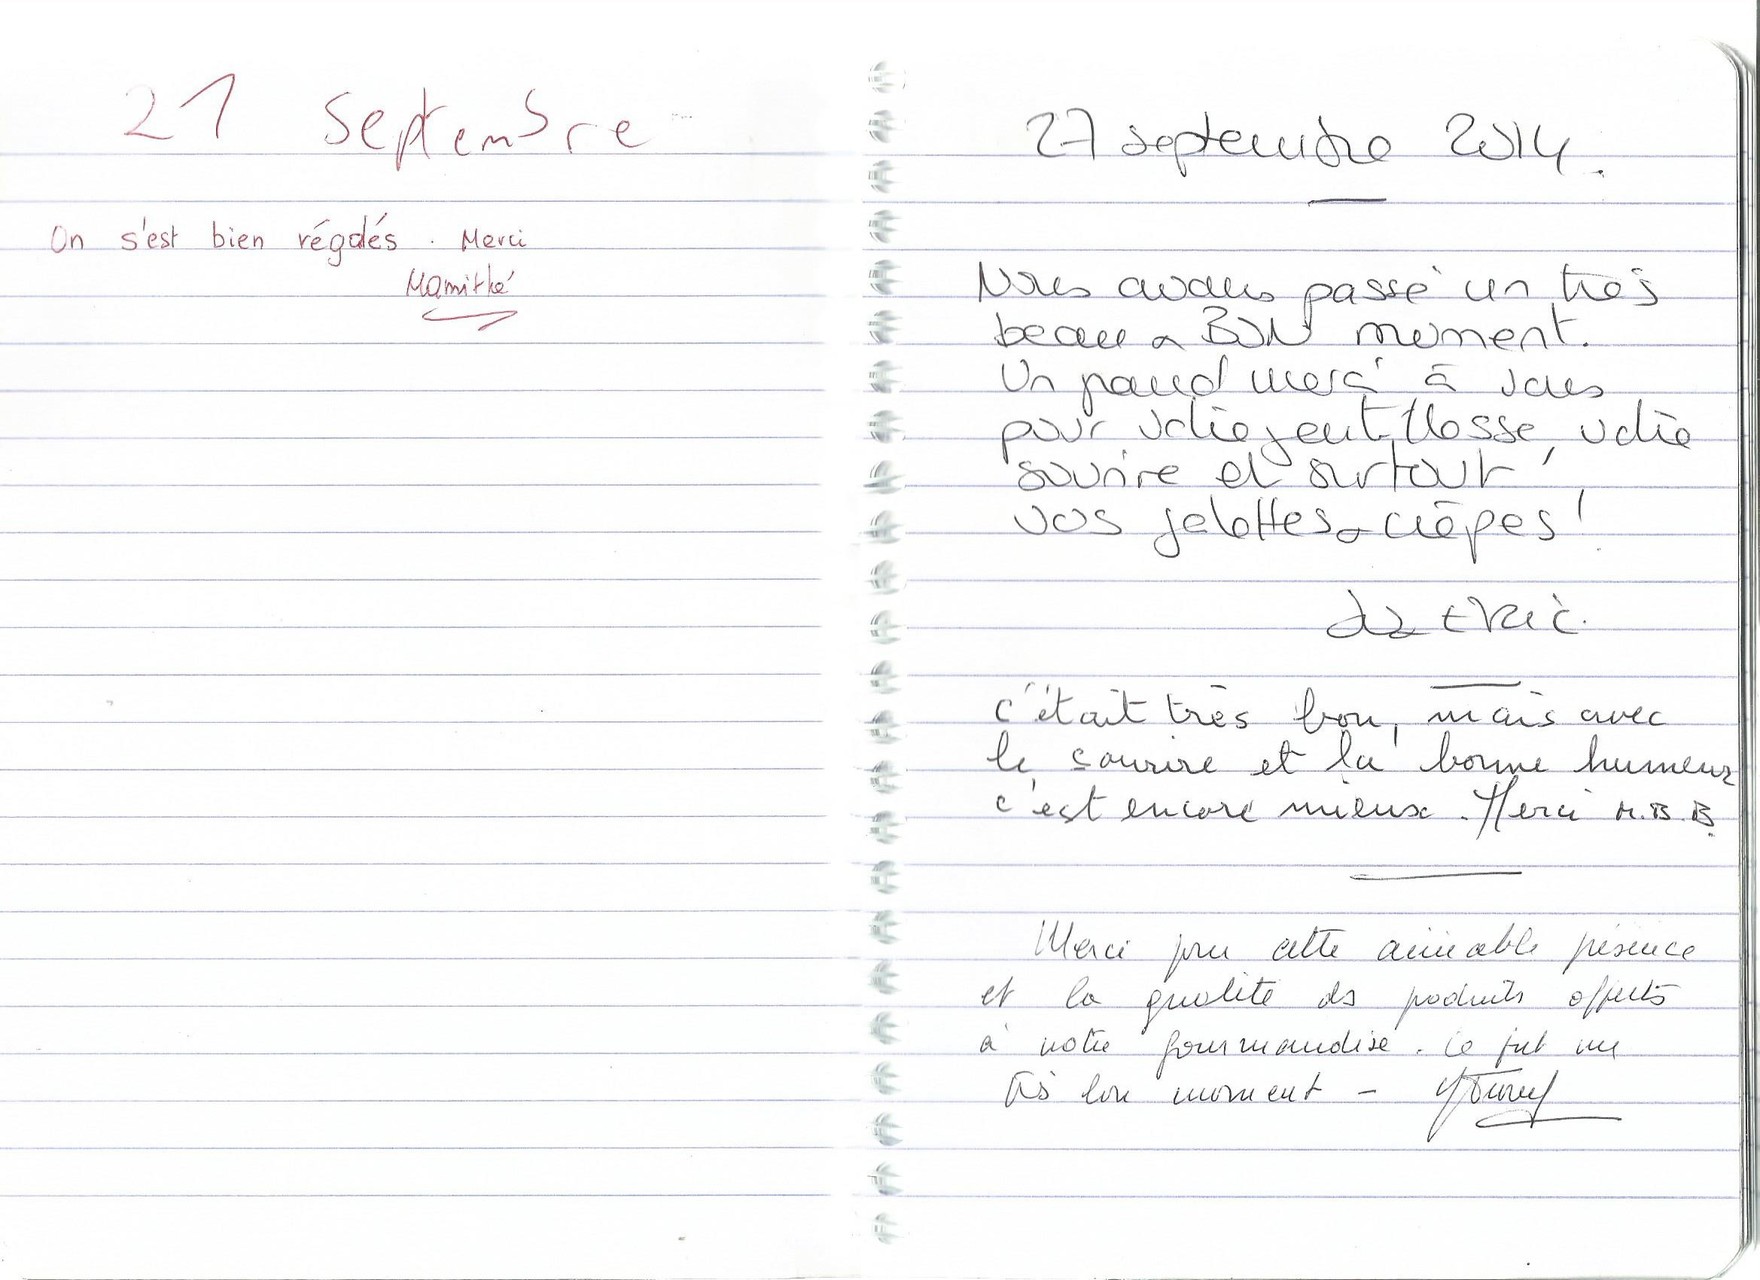 21 Septembre
On s'est bien régalés . Merci
Mamithé
27 septembre 2014.
Nous avons passé un très
beau & BON moment.
Un grand merci à vous
pour votre gentillesse, votre
sourire et surtout
vos galettes & crêpes !
c'était très bon, mais avec
le sourire et la bonne humeur
c'est encore mieux . Merci M.B.B.
Merci pour cette aimable présence
et la qualité des produits offerts
à notre gourmandise . Ce fut un
très bon moment -